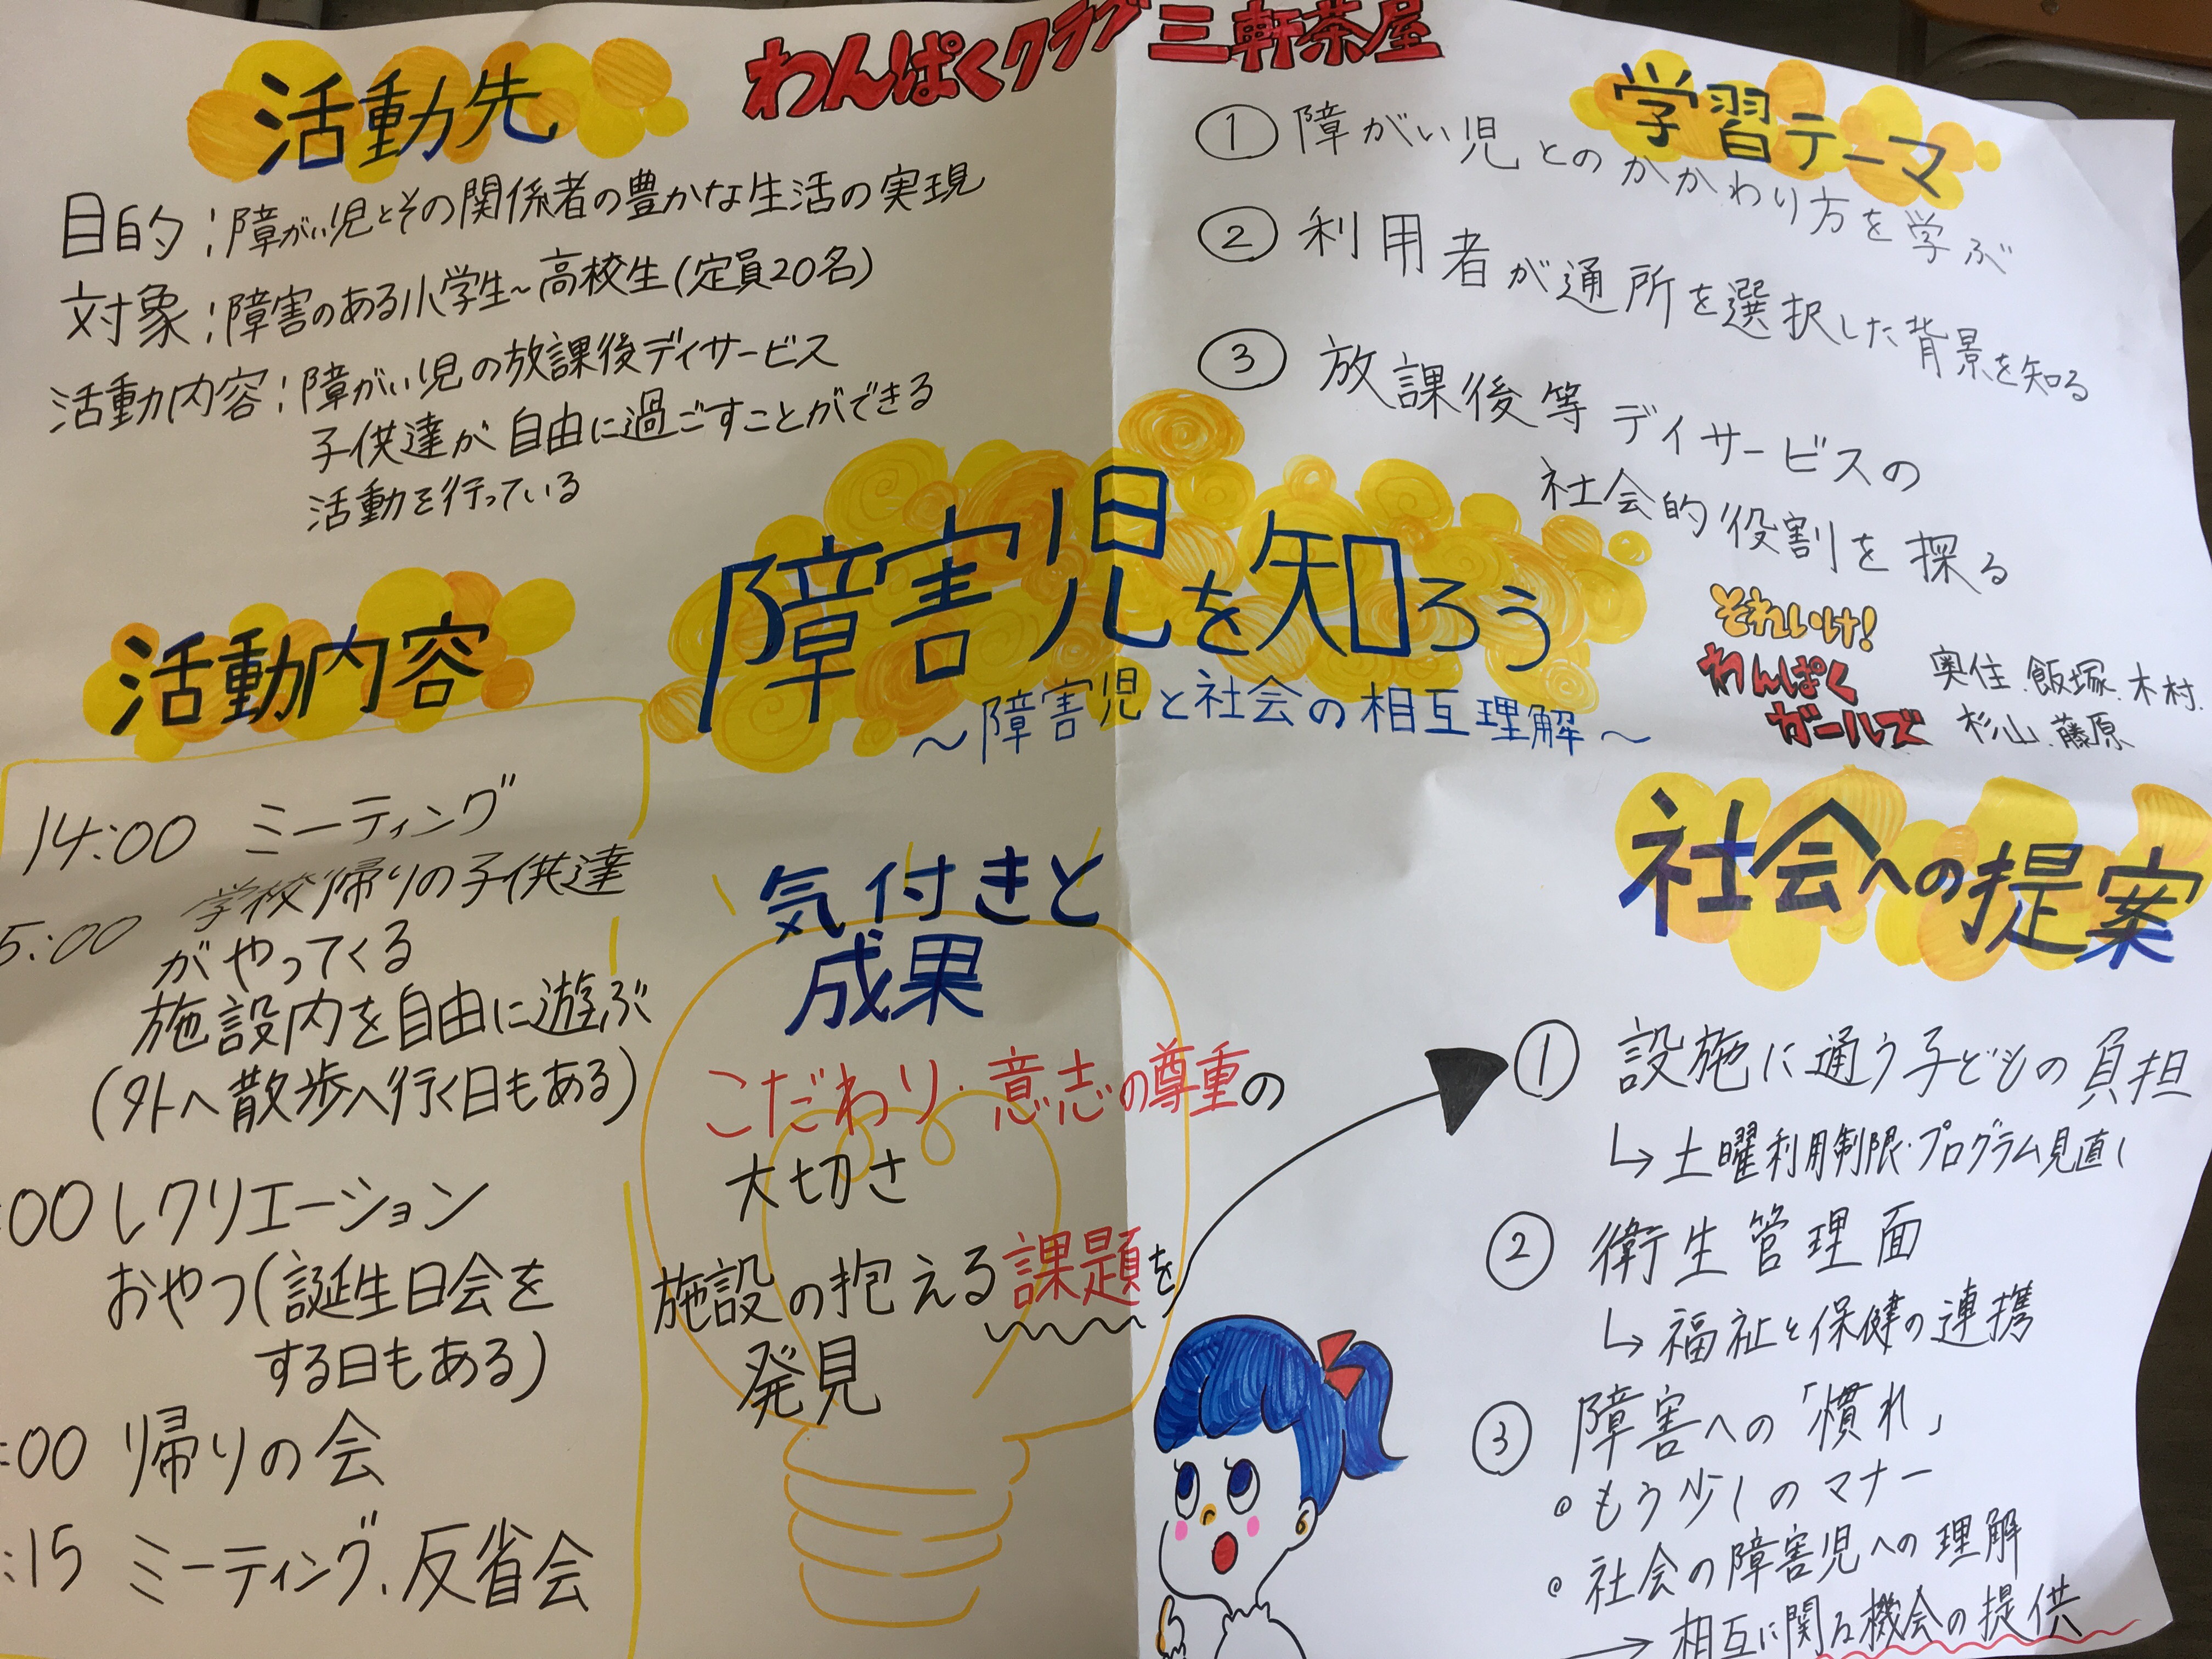 わんぱくクラブ三軒茶屋
活動先
目的：障がい児とその関係者の豊かな生活の実現
対象：障害のある小学生～高校生(定員20名)
活動内容：障がい児の放課後デイサービス
子供達が自由に過ごすことができる
活動を行っている
学習テーマ
① 障がい児とのかかわり方を学ぶ
② 利用者が通所を選択した背景を知る
③ 放課後等デイサービスの
社会的役割を探る
障害児を知ろう
～障害児と社会の相互理解～
それいけ！
わんぱく
ガールズ
奥住、飯塚、木村、
杉山、藤原
活動内容
14:00 ミーティング
5:00 学校帰りの子供達
がやってくる
施設内を自由に遊ぶ
(外へ散歩へ行く日もある)
:00 レクリエーション
おやつ(誕生日会を
する日もある)
:00 帰りの会
:15 ミーティング、反省会
気付きと
成果
こだわり・意志の尊重の
大切さ
施設の抱える課題を
発見
社会への提案
① 設施に通う子どもの負担
↳ 土曜利用制限・プログラム見直し
② 衛生管理面
↳ 福祉と保健の連携
③ 障害への「慣れ」
◎ もう少しのマナー
◎ 社会の障害児への理解
→ 相互に関る機会の提供